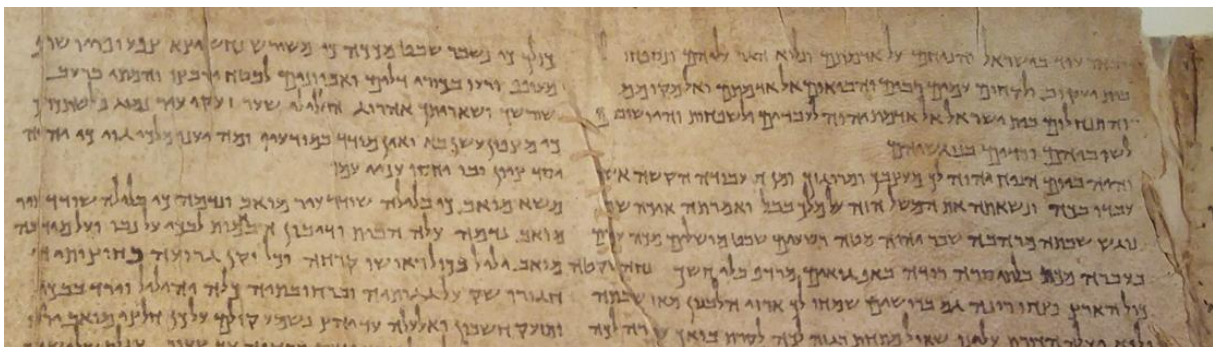 עוד בישראל והניחם על אדמתם ונלוא הגר עליהם ונספחו
בית יעקוב ולקחום עמים רבים והביאום אל אדמתם ואל מקומם
והתנחלום בית ישראל אל אדמת יהוה לעבדים ולשפחות והיו שובים
לשוביהם ורדים בנוגשיהם
והיה ביום הניח יהוה לך מעצבך ומרוגזך ומן ה עבודה הקשה אשר
עבדו בכה ונשאתה את המשל הזה על מלך בבל ואמרתה איכה שבת
נוגש שבתה מרהבה שבר יהוה מטה רשעים שבט מושלים מכה עמים
בעברה מכת בלתי סרה רודה באף גואים מרדף בלי חשך נחה שקטה
כול הארץ פצחו רונה גם ברושים שמחו לך ארזי הלבנון מאז שכבתה
שאול מתחת רגזה לכה לקרת בואך עורר לכה
כולך כי נשבר שבט מככה כי משורש נחש יצא צפע ופריו
מעופף ורעו בכורי דלים ואביונים לבטח ירבצו והמתי ברעב
שורשך ושאריתך אהרוג הילילי שער זעקי עיר נמוג פלשת
כי מצפון עשן בא ואין מודד במודעיו ומה יענו מלכי גוי כי יהוה
יסד ציון ובו יחסו עניי עמו
משא מואב כי בלילה שודד עיר מואב ונדמה כי בלילה שודד קיר
מואב נדמה עלה הבית ודיבון הבמות לבכי על נבו ועל מידבה
מואב יליל בכול ראושו קרחה וכל זקן גרועה בחוצותיה
חגורו שק על גגותיה וברחובותיה כלה יהליל וירד בבכי
ותזעק חשבון ואלעלה עד יהץ נשמע קולם על כן חלצי מואב